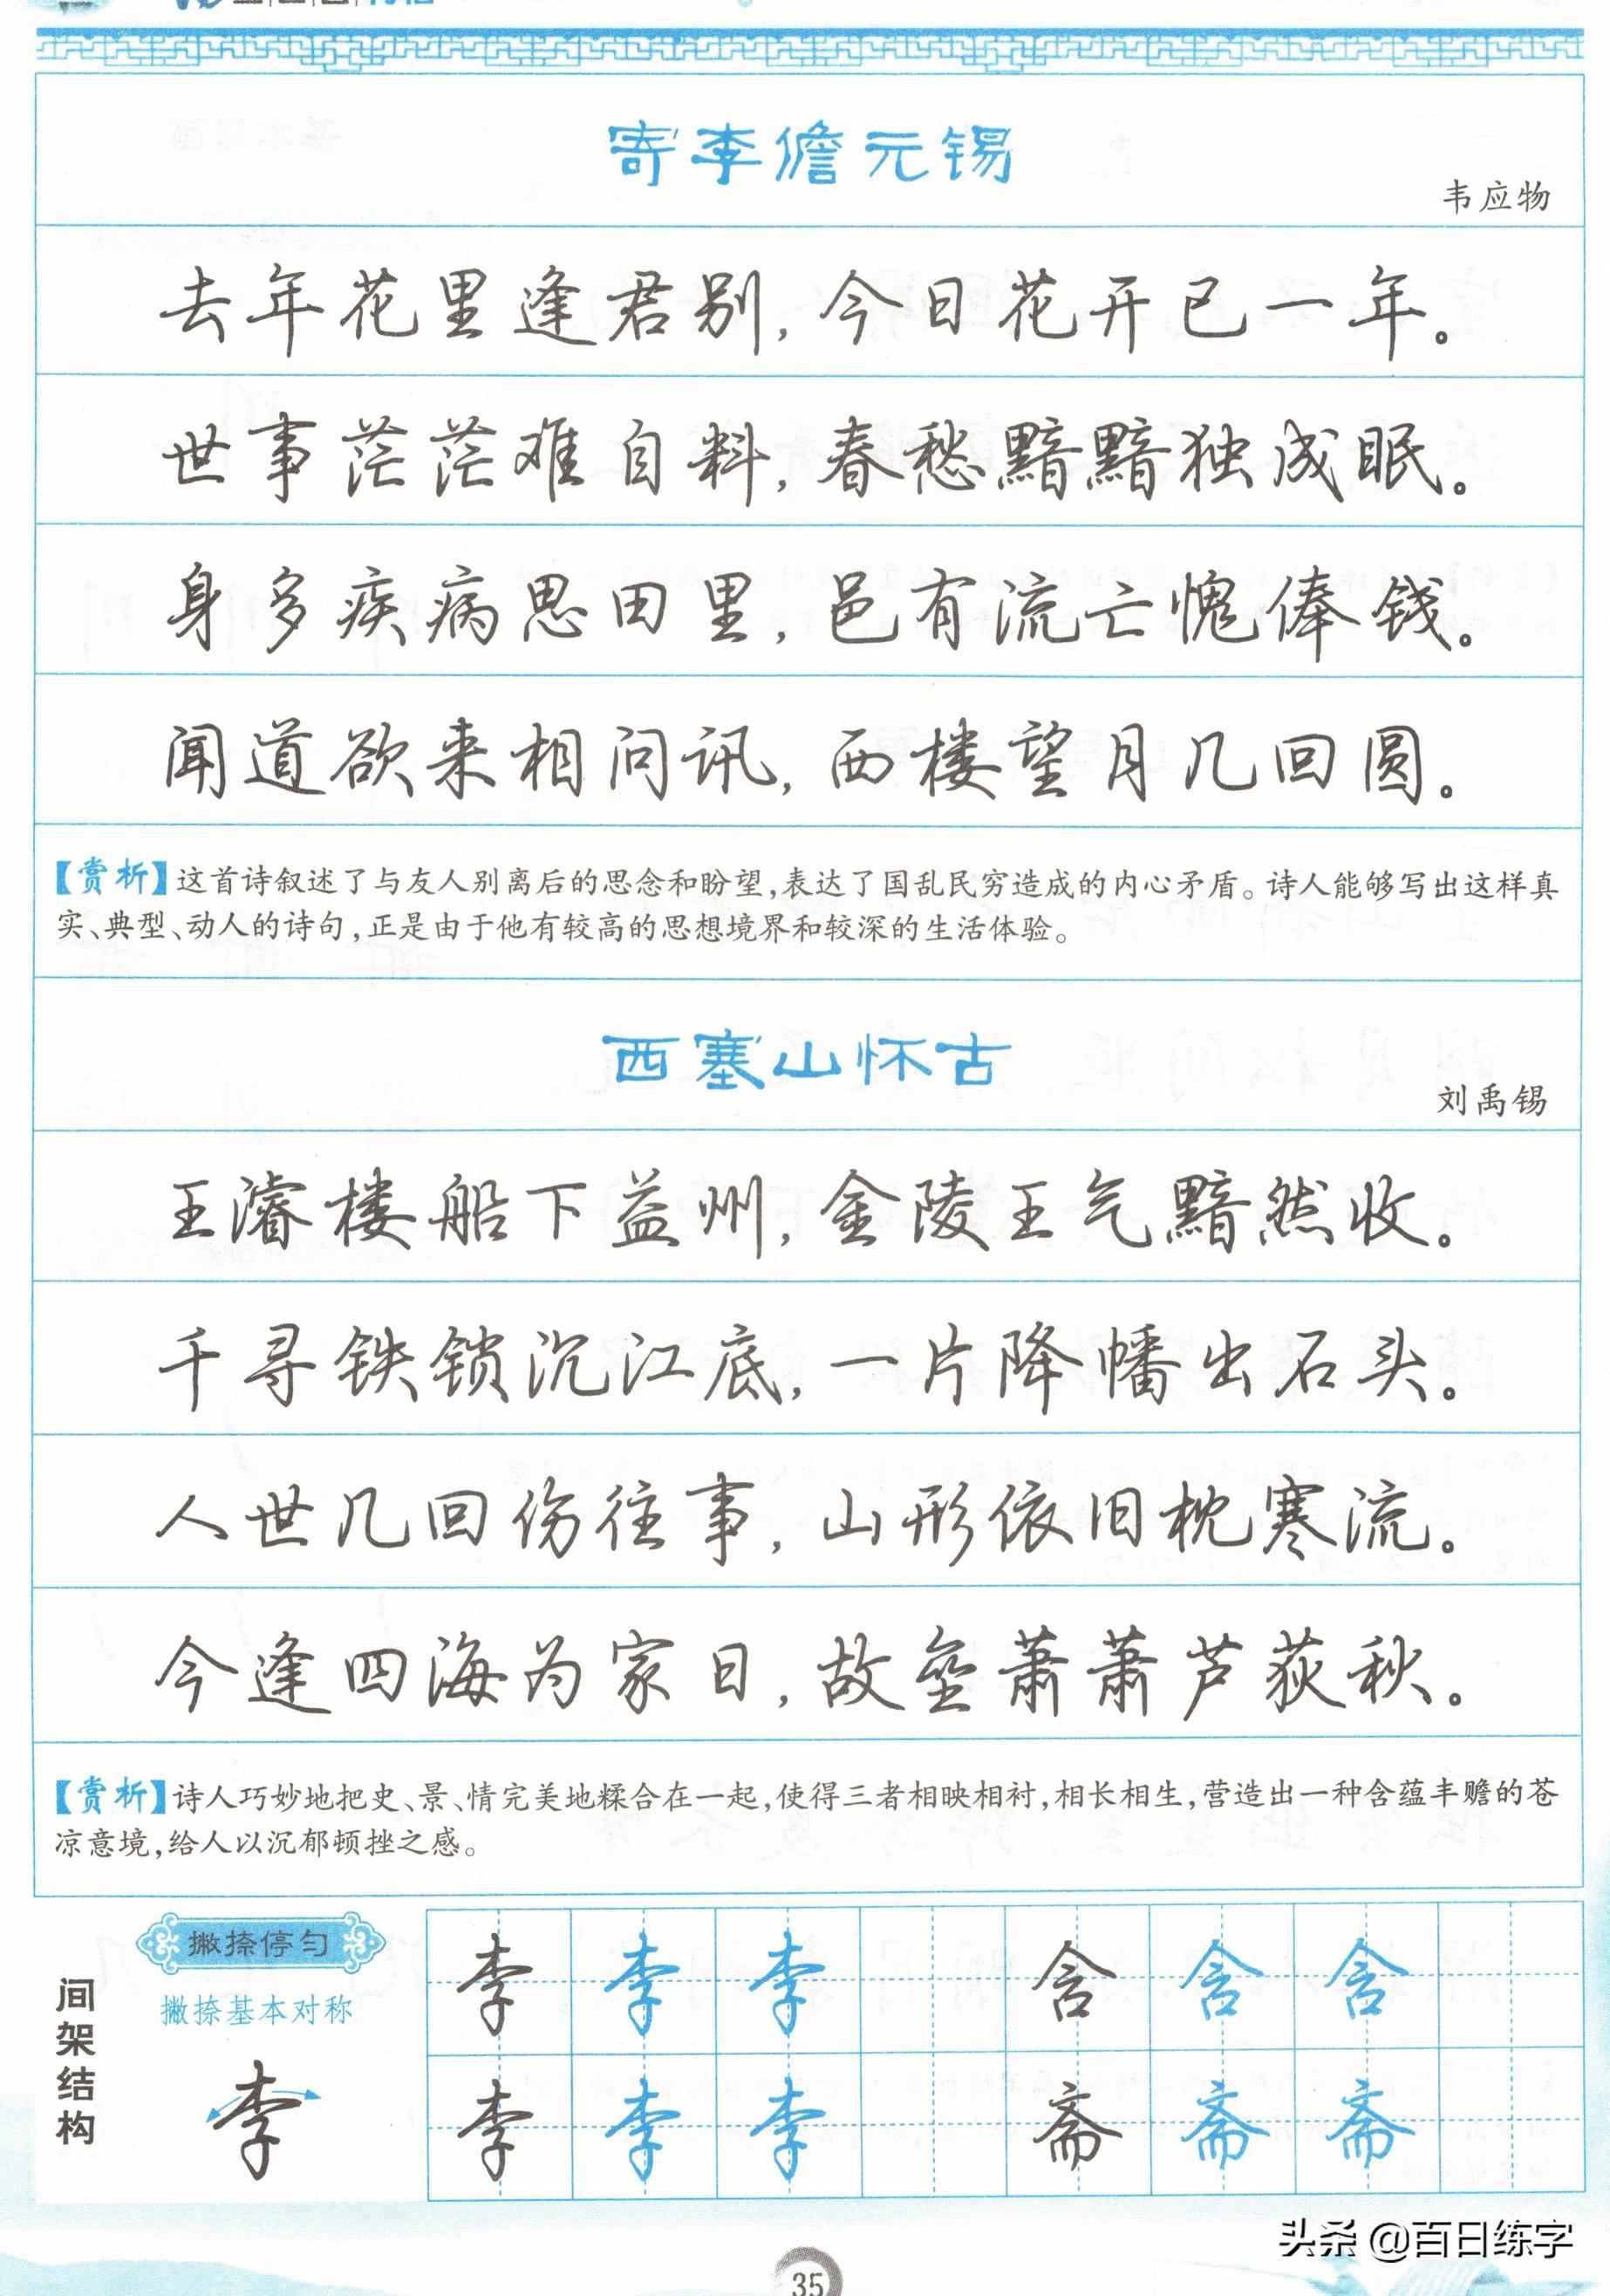 寄李儋元锡
韦应物
去年花里逢君别，今日花开已一年。
世事茫茫难自料，春愁黯黯独成眠。
身多疾病思田里，邑有流亡愧俸钱。
闻道欲来相问讯，西楼望月几回圆。
【赏析】这首诗叙述了与友人别离后的思念和盼望，表达了国乱民穷造成的内心矛盾。诗人能够写出这样真
实、典型、动人的诗句，正是由于他有较高的思想境界和较深的生活体验。
西塞山怀古
刘禹锡
王濬楼船下益州，金陵王气黯然收。
千寻铁锁沉江底，一片降幡出石头。
人世几回伤往事，山形依旧枕寒流。
今逢四海为家日，故垒萧萧芦荻秋。
【赏析】诗人巧妙地把史、景、情完美地糅合在一起，使得三者相映相衬，相长相生，营造出一种含蕴丰赡的苍
凉意境，给人以沉郁顿挫之感。
间架结构
撇捺停匀
撇捺基本对称
李
李 李 李 含 含 含
李 李 李 斋 斋 斋
头条 @百日练字
35